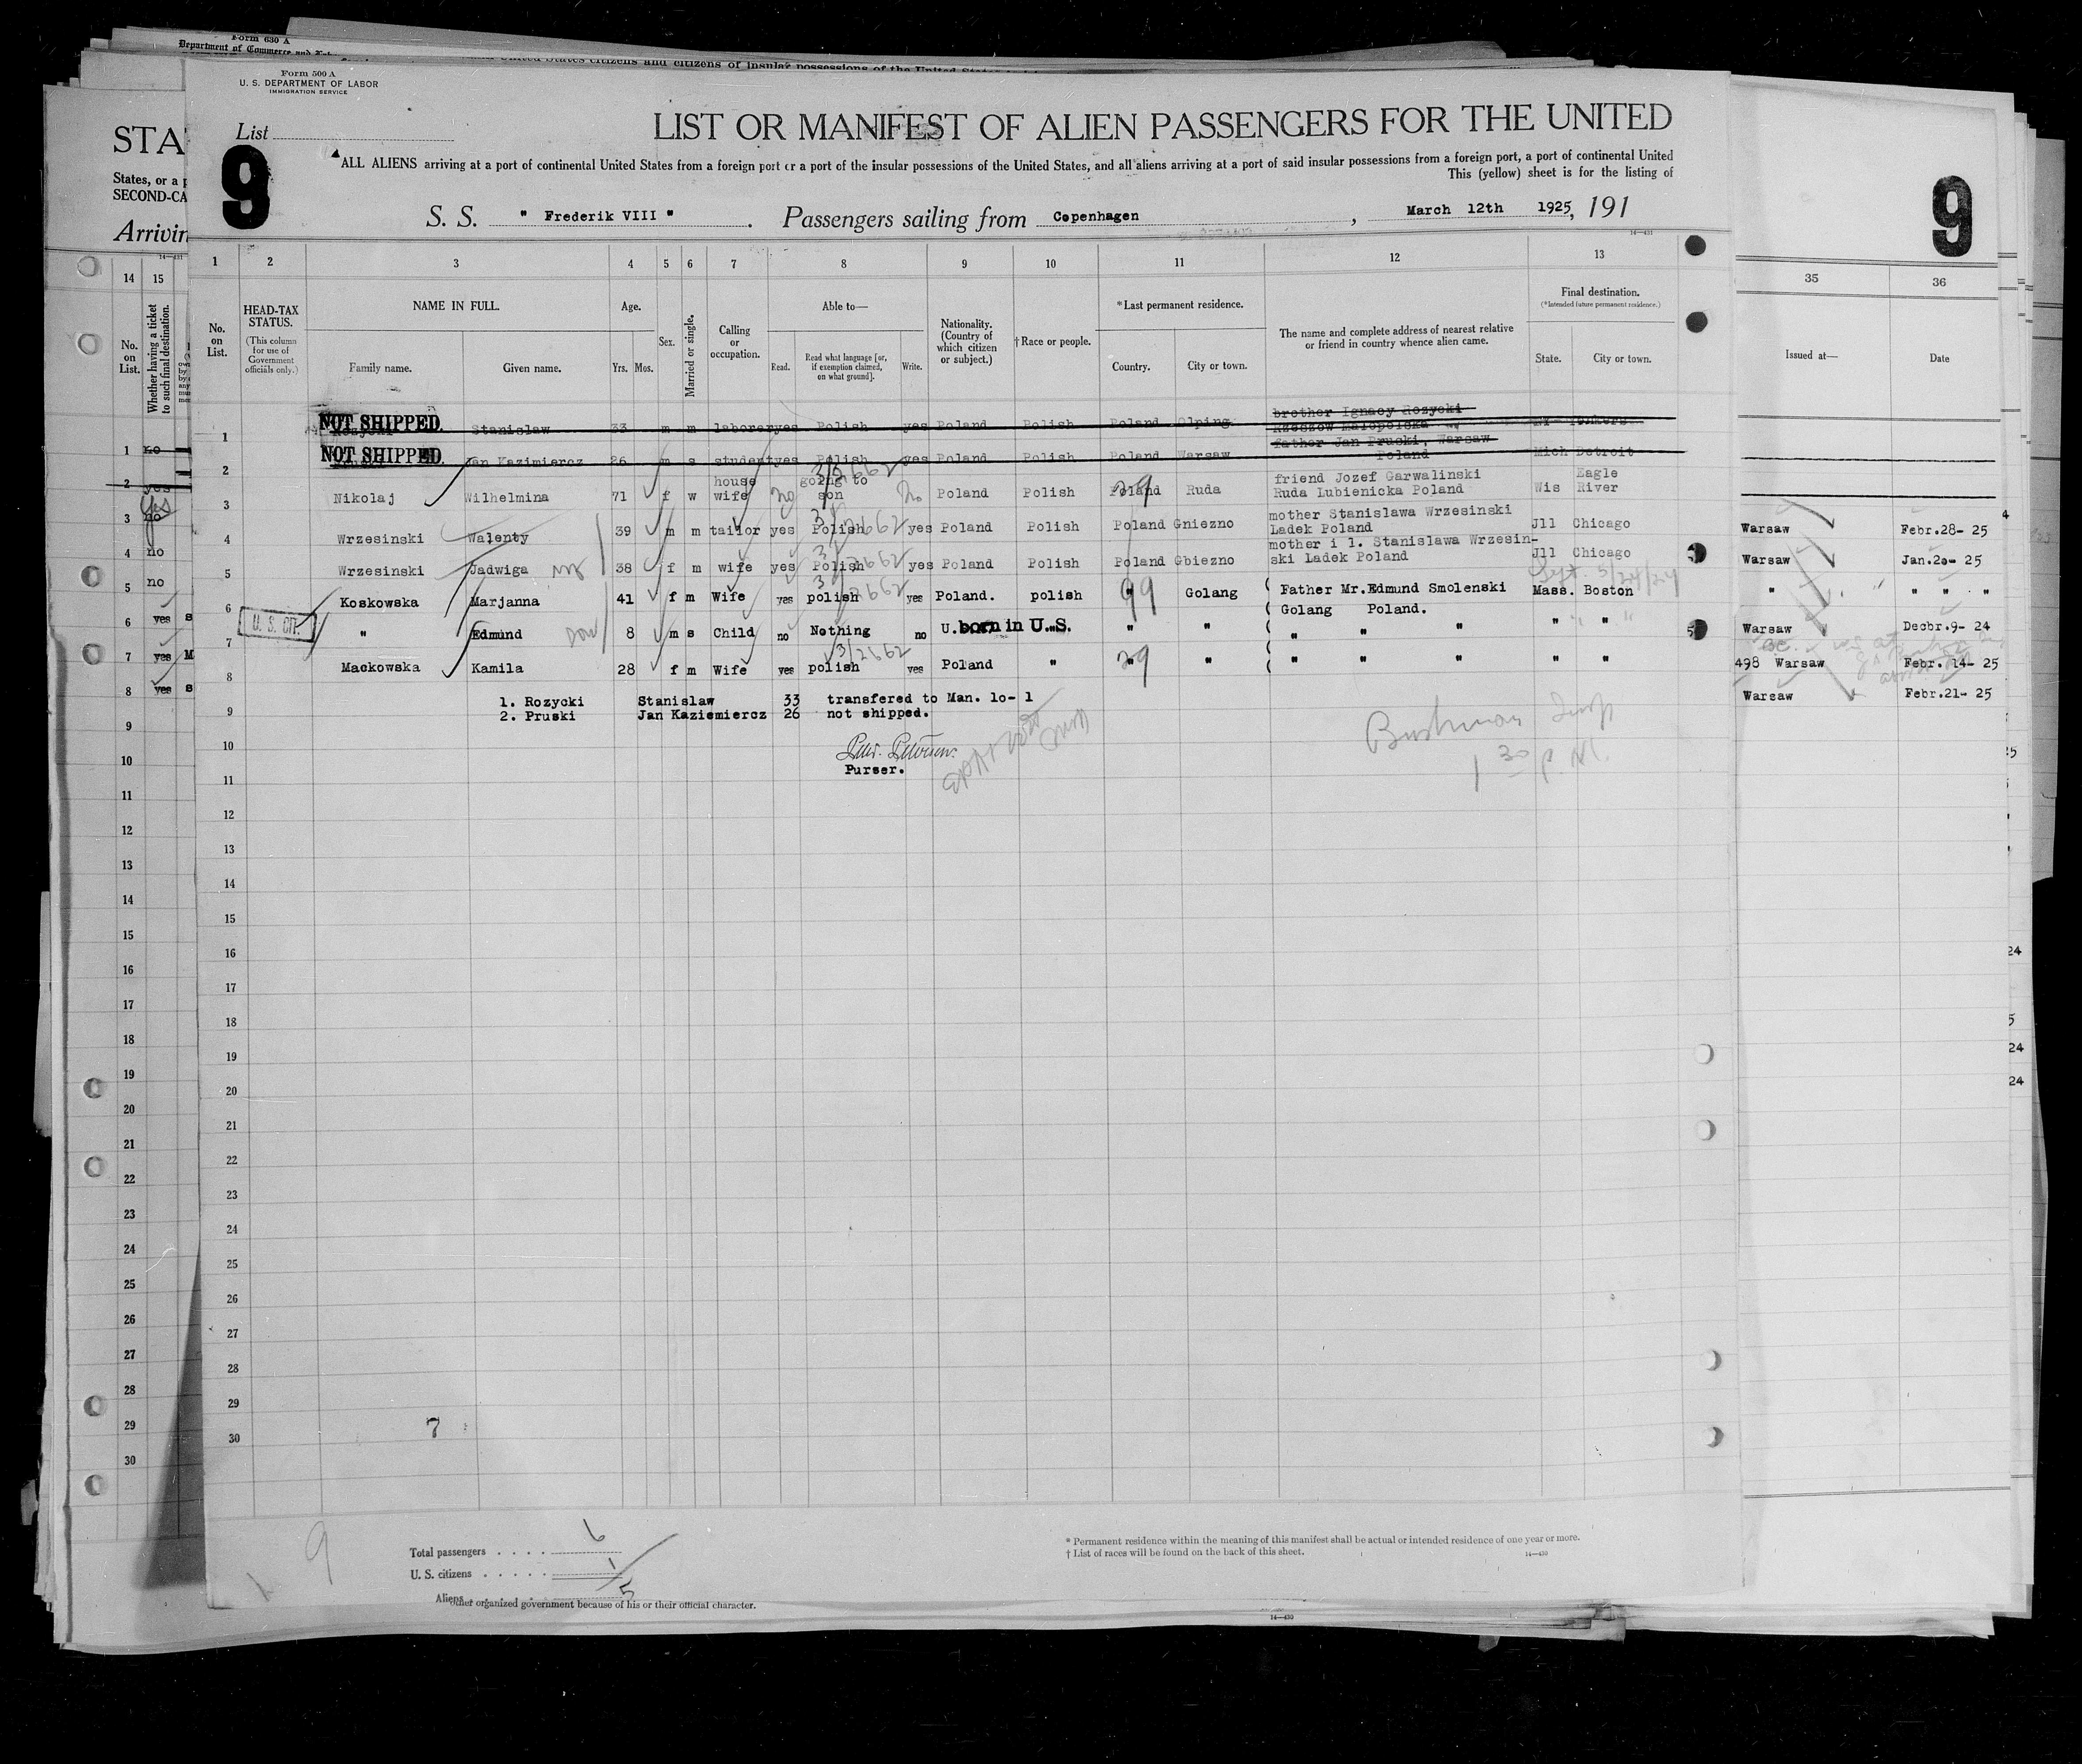 Form 630 A
Department of Commerce and
Form 500 A
U. S. DEPARTMENT OF LABOR
IMMIGRATION SERVICE
List
9
LIST OR MANIFEST OF ALIEN PASSENGERS FOR THE UNITED
ALL ALIENS arriving at a port of continental United States from a foreign port or a port of the insular possessions of the United States, and all aliens arriving at a port of said insular possessions from a foreign port, a port of continental United
This (yellow) sheet is for the listing of
S. S. " Frederik VIII " . Passengers sailing from Copenhagen , March 12th 1925, 191
STA
States, or a p
SECOND-CA
Arrivin
9
1 2 3 4 5 6 7 8 9 10 11 12 13
14 15
35 36
No. on List.
HEAD-TAX STATUS.
(This column for use of Government officials only.)
NAME IN FULL.
Family name. Given name.
Age.
Yrs. Mos.
Sex.
Married or single.
Calling or occupation.
Able to—
Read. Read what language [or, if exemption claimed, on what ground]. Write.
Nationality. (Country of which citizen or subject.)
†Race or people.
*Last permanent residence.
Country. City or town.
The name and complete address of nearest relative or friend in country whence alien came.
Final destination.
(*Intended future permanent residence.)
State. City or town.
No. on List.
Whether having a ticket to such final destination.
Issued at— Date
NOT SHIPPED.
1 Rozycki Stanislaw 33 m m laborer yes Polish yes Poland Polish Poland Olping brother Ignacy Rozycki
Rzeszow Malopolska NY Yonkers
NOT SHIPPED.
2 Pruski Jan Kazimiercz 26 m s student yes Polish yes Poland Polish Poland Warsaw father Jan Pruski, Warsaw
Poland Mich Detroit
3 Nikolaj Wilhelmina 71 f w house wife no going to son no Poland Polish Poland Ruda friend Jozef Garwalinski
Ruda Lubienicka Poland Wis Eagle River
4 Wrzesinski Walenty 39 m m tailor yes Polish yes Poland Polish Poland Gniezno mother Stanislawa Wrzesinski
Ladek Poland Jll Chicago
5 Wrzesinski Jadwiga 38 f m wife yes Polish yes Poland Polish Poland Gbiezno mother i l. Stanislawa Wrzesin-
ski Ladek Poland Jll Chicago
6 Koskowska Marjanna 41 f m Wife yes polish yes Poland. polish " Golang ( Father Mr.Edmund Smolenski Mass. Boston
( Golang Poland.
U. S. CIT.
7 " Edmund 8 m s Child no Nothing no U. born in U.S. " " ( " " " " "
8 Mackowska Kamila 28 f m Wife yes polish yes Poland " " " ( " " " " "
1. Rozycki Stanislaw 33 transfered to Man. lo- 1
2. Pruski Jan Kaziemiercz 26 not shipped.
Purser.
Bushman
1 30 P.M.
9
10
11
12
13
14
15
16
17
18
19
20
21
22
23
24
25
26
27
28
29
30
7
1 no
2 yes
yes
3 no
4 no
5 no
6 yes s
7 yes M
8 yes s
9
10
11
12
13
14
15
16
17
18
19
20
21
22
23
24
25
26
27
28
29
30
Warsaw Febr.28- 25
Warsaw Jan.2o- 25
" " " "
Warsaw Decbr.9- 24
498 Warsaw Febr. 14- 25
Warsaw Febr.21- 25
9
Total passengers . . . . 6
U. S. citizens . . . . . 1
Aliens 5
other organized government because of his or their official character.
* Permanent residence within the meaning of this manifest shall be actual or intended residence of one year or more.
† List of races will be found on the back of this sheet.
14—430
14—430